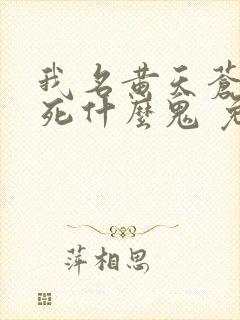 我名黄天蒼
死什麼鬼
萍相思